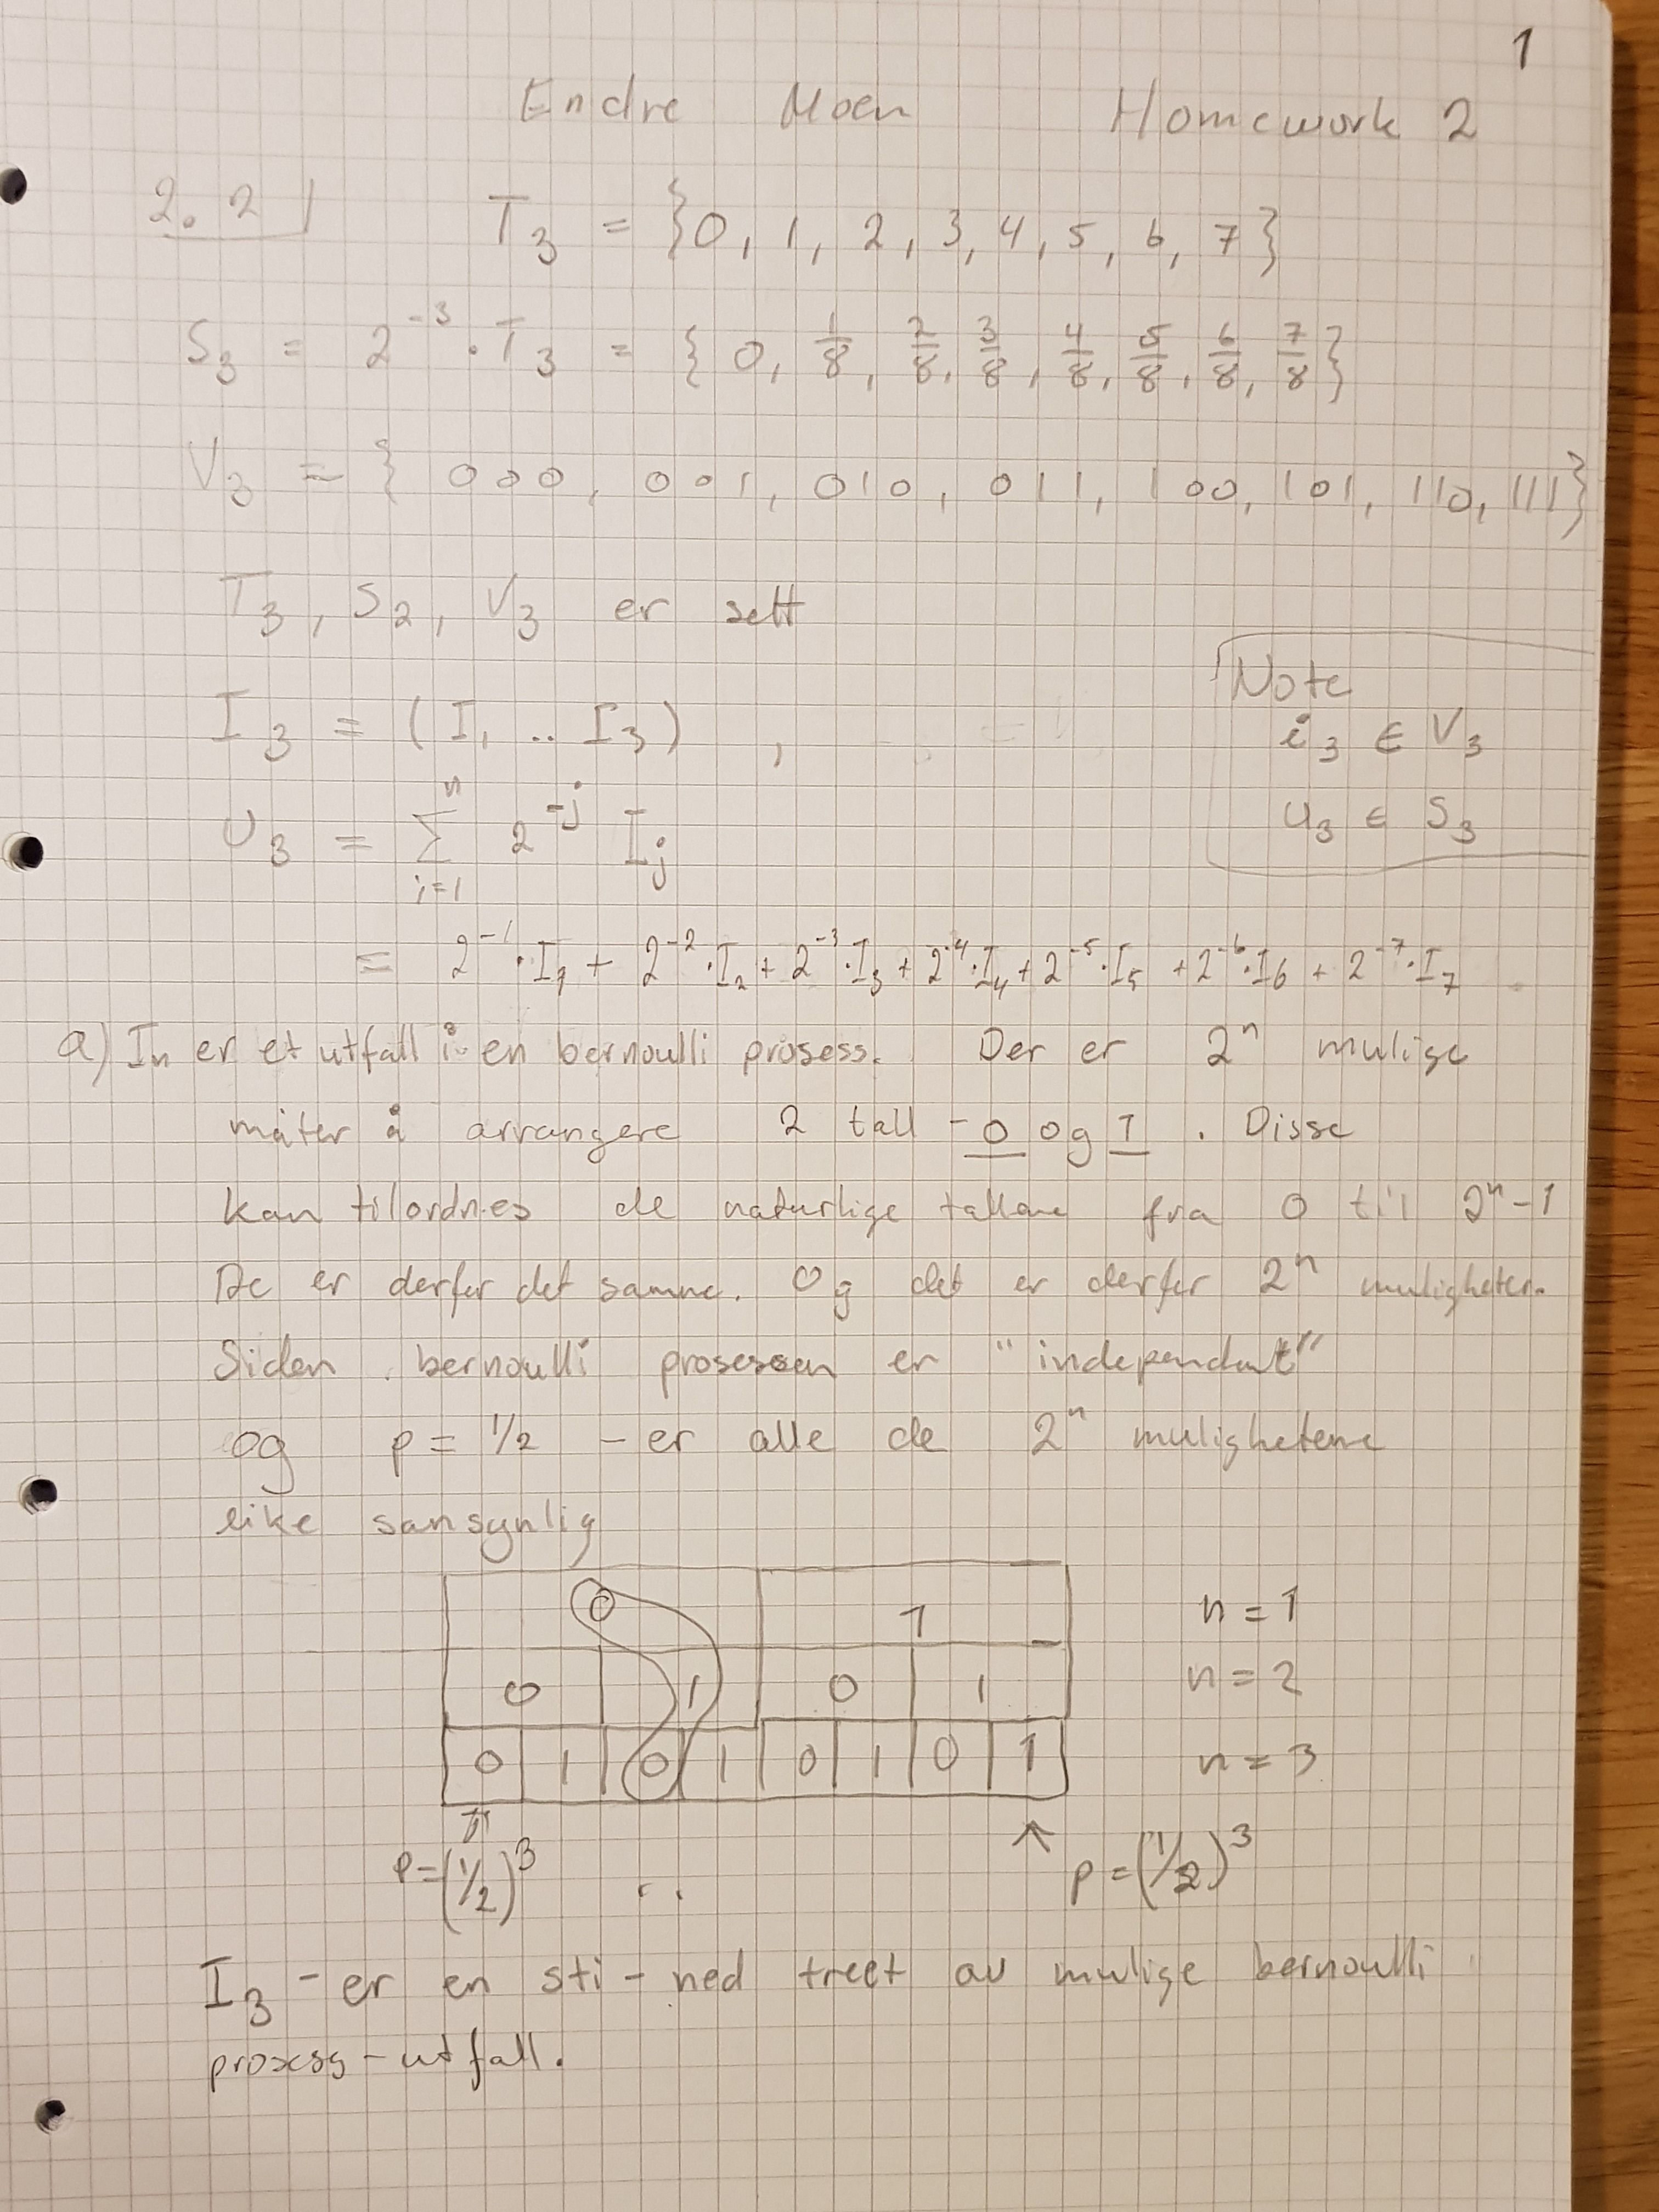 1
Endre Moen Homework 2
2.21 T₃ = {0, 1, 2, 3, 4, 5, 6, 7}
S₃ = 2⁻³ · T₃ = { 0, 1/8, 2/8, 3/8, 4/8, 5/8, 6/8, 7/8 }
V₃ = { 000, 001, 010, 011, 100, 101, 110, 111}
T₃, S₂, V₃ er sett
I₃ = (I₁ .. I₃) ,
Note
i₃ ∈ V₃
u₃ ∈ S₃
U₃ = Σ_{i=1}^{n} 2^{-j} I_j
= 2⁻¹·I₁ + 2⁻²·I₂ + 2⁻³·I₃ + 2⁻⁴·I₄ + 2⁻⁵·I₅ + 2⁻⁶·I₆ + 2⁻⁷·I₇
a) In er et utfall i en bernoulli prosess. Der er 2ⁿ mulige
måter å arrangere 2 tall - 0 og 1 . Disse
kan tilordnes de naturlige tallene fra 0 til 2ⁿ-1
De er derfor det samme. Og det er derfor 2ⁿ muligheter.
Siden bernoulli prosessen er "independent"
og p = 1/2 - er alle de 2ⁿ mulighetene
like sansynlig
0 1 n = 1
0 1 0 1 n = 2
0 1 0 1 0 1 0 1 n = 3
p = (1/2)³ .. p = (1/2)³
I₃ - er en sti - ned treet av mulige bernoulli
prosess - utfall.